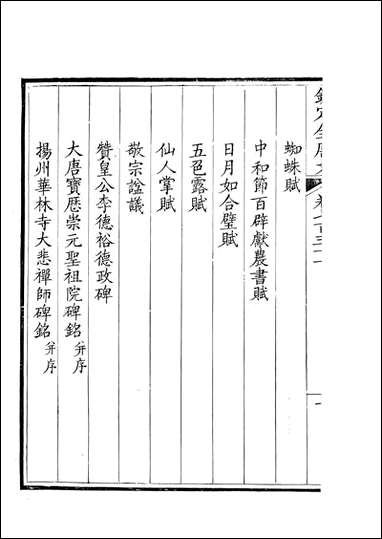 欽定全唐文 卷七百三十一
蜘蛛賦
中和節百辟獻農書賦
日月如合璧賦
五色露賦
仙人掌賦
敬宗諡議
贊皇公李德裕德政碑
大唐寶歷崇元聖祖院碑銘并序
揚州華林寺大悲禪師碑銘并序